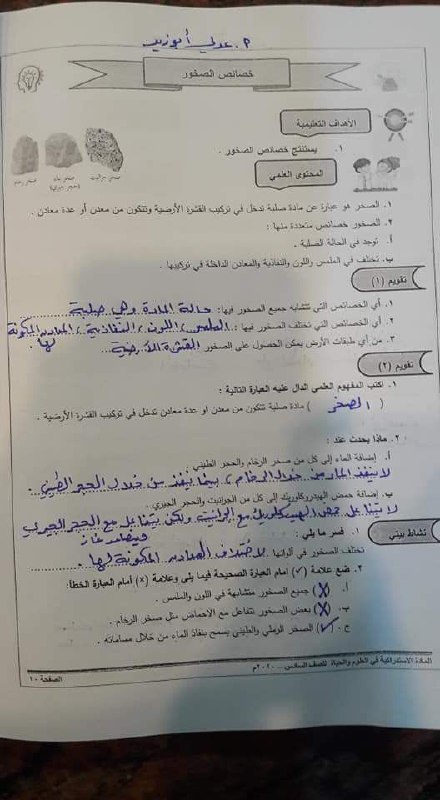 م. عدلي أبوزيد
خصائص الصخور
الأهداف التعليمية
١. يستنتج خصائص الصخور .
المحتوى العلمي
١. الصخر هو عبارة عن مادة صلبة تدخل في تركيب القشرة الأرضية وتتكون من معدن أو عدة معادن .
٢. للصخور خصائص متعددة منها :
أ. توجد في الحالة الصلبة .
ب. تختلف في الملمس واللون والنفاذية والمعادن الداخلة في تركيبها .
تقويم (١)
١. أي الخصائص التي تتشابه جميع الصخور فيها: حالة المادة وهي صلبة
٢. أي الخصائص التي تختلف الصخور فيها : الملمس، اللون، النفاذية، المعادن المكونة لها.
٣. من أي طبقات الأرض يمكن الحصول على الصخور القشرة الأرضية
تقويم (٢)
١. اكتب المفهوم العلمي الدال عليه العبارة التالية :
( الصخر ) مادة صلبة تتكون من معدن او عدة معادن تدخل في تركيب القشرة الأرضية .
٢. ماذا يحدث عند :
أ. إضافة الماء إلى كل من صخر الرخام والحجر الطيني :
لا ينفذ الماء من خلال الرخام، بينما ينفذ من خلال الحجر الطيني.
ب. إضافة حمض الهيدروكلوريك إلى كل من الجرانيت والحجر الجيري.
لا يتفاعل حمض الهيدروكلوريك مع الجرانيت ولكن يتفاعل مع الحجر الجيري
نشاط بيتي
١. فسر ما يلي :
تختلف الصخور في ألوانها لاختلاف المعادن المكونة لها.
٢. ضع علامة (✓) امام العبارة الصحيحة فيما يلى وعلامة (×) أمام العبارة الخطأ:
أ. (X) جميع الصخور متشابهة في اللون والملمس .
ب. (X) بعض الصخور تتفاعل مع الاحماض مثل صخر الرخام .
ج. (✓) الصخر الرملي والطيني يسمح بنفاذ الماء من خلال مساماته .
المادة الاستدراكية في العلوم والحياة للصف السادس - ٢٠٢٠م
الصفحة ١٠